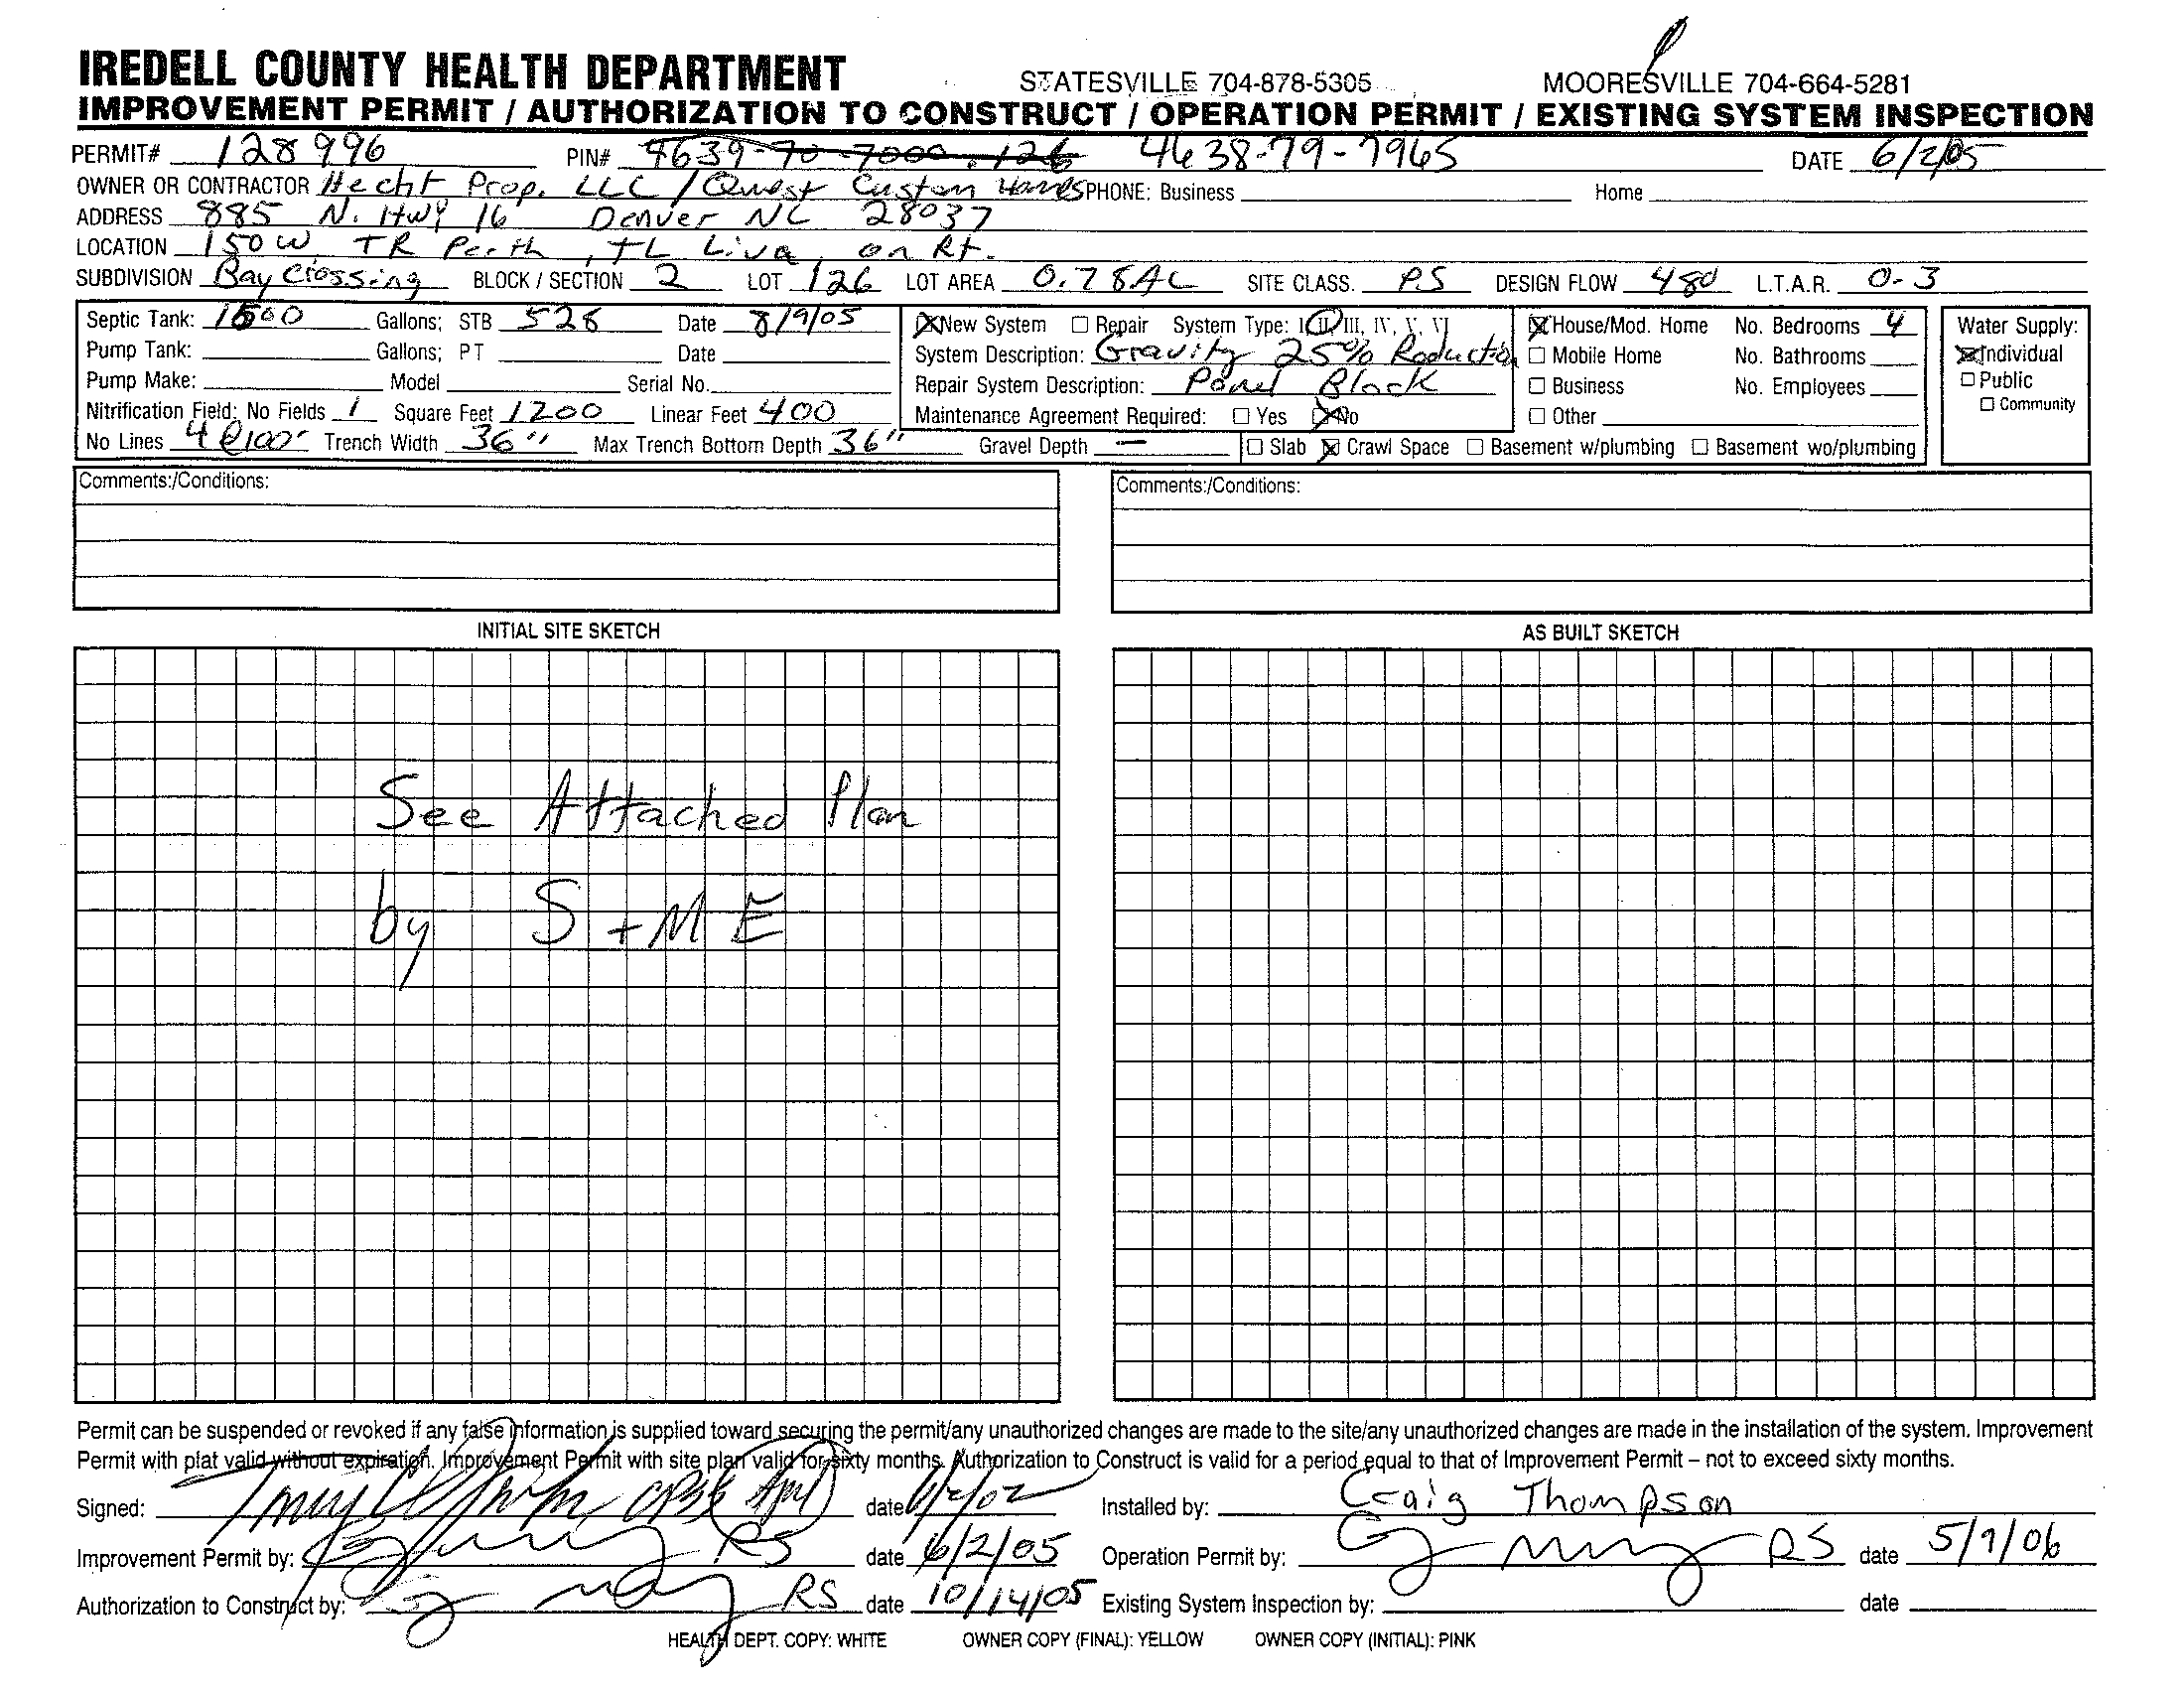 IREDELL COUNTY HEALTH DEPARTMENT STATESVILLE 704-878-5305 MOORESVILLE 704-664-5281
IMPROVEMENT PERMIT / AUTHORIZATION TO CONSTRUCT / OPERATION PERMIT / EXISTING SYSTEM INSPECTION
PERMIT# 128996 PIN# 4639-70-7000.126 4638-79-7965 DATE 6/2/05
OWNER OR CONTRACTOR Hecht Prop. LLC / Quest Custom Homes PHONE: Business Home
ADDRESS 885 N. Hwy 16 Denver NC 28037
LOCATION 150 W TR Perth, TL Liva, on Rt.
SUBDIVISION Bay Crossing BLOCK / SECTION 2 LOT 126 LOT AREA 0.78 AC SITE CLASS. PS DESIGN FLOW 480 L.T.A.R. 0.3
Septic Tank: Gallons; STB 528 Date 8/9/05 New System Repair System Type: I, II, III, IV, V, VI House/Mod. Home No. Bedrooms 4 Water Supply:
Pump Tank: Gallons; PT Date System Description: Gravity 25% Reduction Mobile Home No. Bathrooms Individual
Pump Make: Model Serial No. Repair System Description: Panel Block Business No. Employees Public
Nitrification Field: No Fields 1 Square Feet 1200 Linear Feet 400 Maintenance Agreement Required: Yes No Other Community
No Lines 4@100' Trench Width 36" Max Trench Bottom Depth 36" Gravel Depth — Slab Crawl Space Basement w/plumbing Basement wo/plumbing
Comments:/Conditions: Comments:/Conditions:
INITIAL SITE SKETCH AS BUILT SKETCH
See Attached Plan
by S+ME
Permit can be suspended or revoked if any false information is supplied toward securing the permit/any unauthorized changes are made to the site/any unauthorized changes are made in the installation of the system. Improvement
Permit with plat valid without expiration. Improvement Permit with site plan valid for sixty months. Authorization to Construct is valid for a period equal to that of Improvement Permit – not to exceed sixty months.
Signed: date Installed by: Craig Thompson
Improvement Permit by: RS date 6/2/05 Operation Permit by: RS date 5/9/06
Authorization to Construct by: RS date 10/14/05 Existing System Inspection by: date
HEALTH DEPT. COPY: WHITE OWNER COPY (FINAL): YELLOW OWNER COPY (INITIAL): PINK